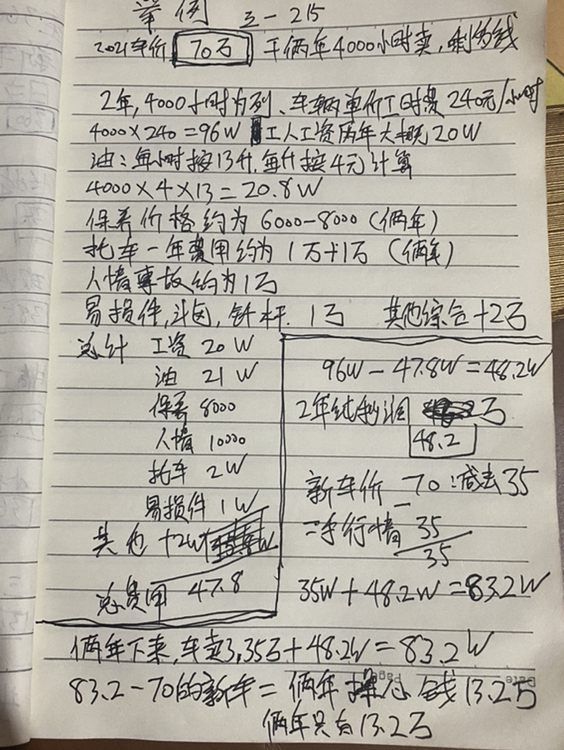 举例 三一215
2021年价 70万 干俩年4000小时卖,剩多钱
2年,4000小时为列、车辆单价工时费240元/小时
4000×240=96W 工人工资历年大概20W
油:每小时按13升,每升按4元计算
4000×4×13=20.8W
保养价格约为6000-8000(俩年)
托车一年费用约为1万+1万(俩年)
人情事故约为1万
易损件,斗齿,钎杆.1万 其他综合+2万
总计 工资20W
油 21W
保养 8000
人情 10000
托车 2W
易损件 1W
其他 +2W
总费用 47.8
96W-47.8W=48.2W
2年纯利润 万
48.2
新车价 70:减去35
二手行情 35
35
35W+48.2W=83.2W
俩年下来,车卖3,35万+48.2W=83.2W
83.2-70的新车=俩年操心钱13.2万
俩年只有13.2万
Date Page